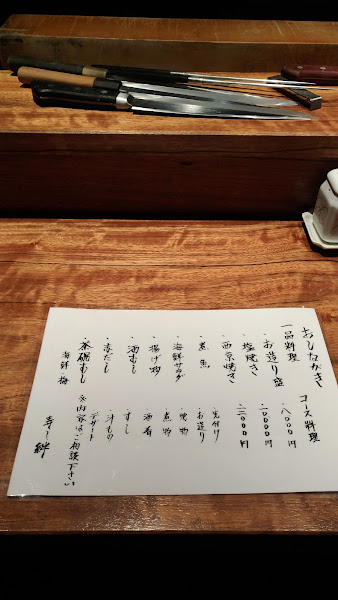 おしながき
一品料理
・お造り盛
・塩焼き
・西京焼き
・煮魚
・海鮮サラダ
・揚げ物
・酒むし
・赤だし
・茶碗むし
海鮮・梅
コース料理
・八〇〇〇円
・一〇〇〇〇円
・一二〇〇〇円
・先付け
・お造り
焼物
煮物
酒肴
・すし
・汁もの
デザート
※内容はご相談下さい
寿し絆